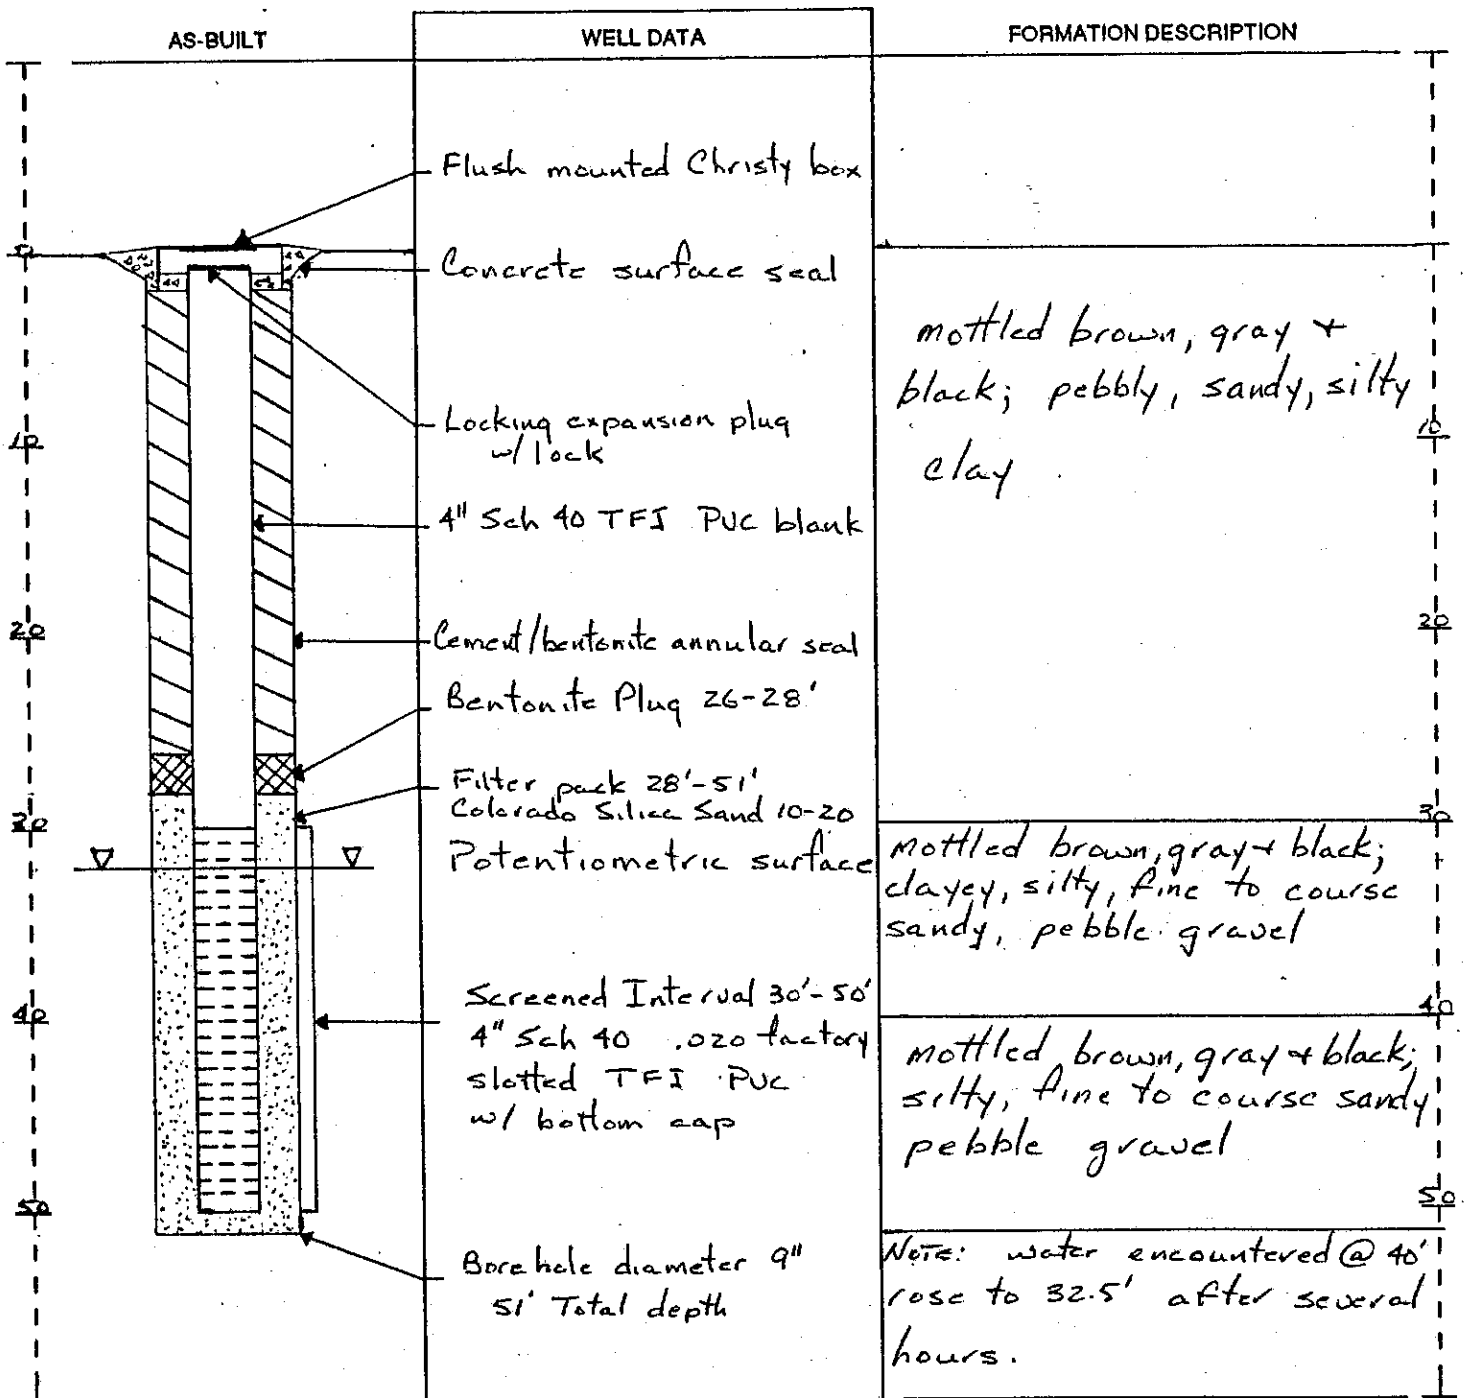 AS-BUILT
WELL DATA
FORMATION DESCRIPTION
Flush mounted Christy box
Concrete surface seal
Locking expansion plug
w/ lock
4" Sch 40 TFI PVC blank
Cement/bentonite annular seal
Bentonite Plug 26-28'
Filter pack 28'-51'
Colorado Silica Sand 10-20
Potentiometric surface
Screened Interval 30'-50'
4" Sch 40 .020 factory
slotted TFI PVC
w/ bottom cap
Borehole diameter 9"
51' Total depth
mottled brown, gray +
black; pebbly, sandy, silty
clay
mottled brown, gray + black;
clayey, silty, fine to course
sandy, pebble gravel
mottled brown, gray + black;
silty, fine to course sandy
pebble gravel
NOTE: water encountered @ 40'
rose to 32.5' after several
hours.
0
10
20
30
40
50
10
20
30
40
50